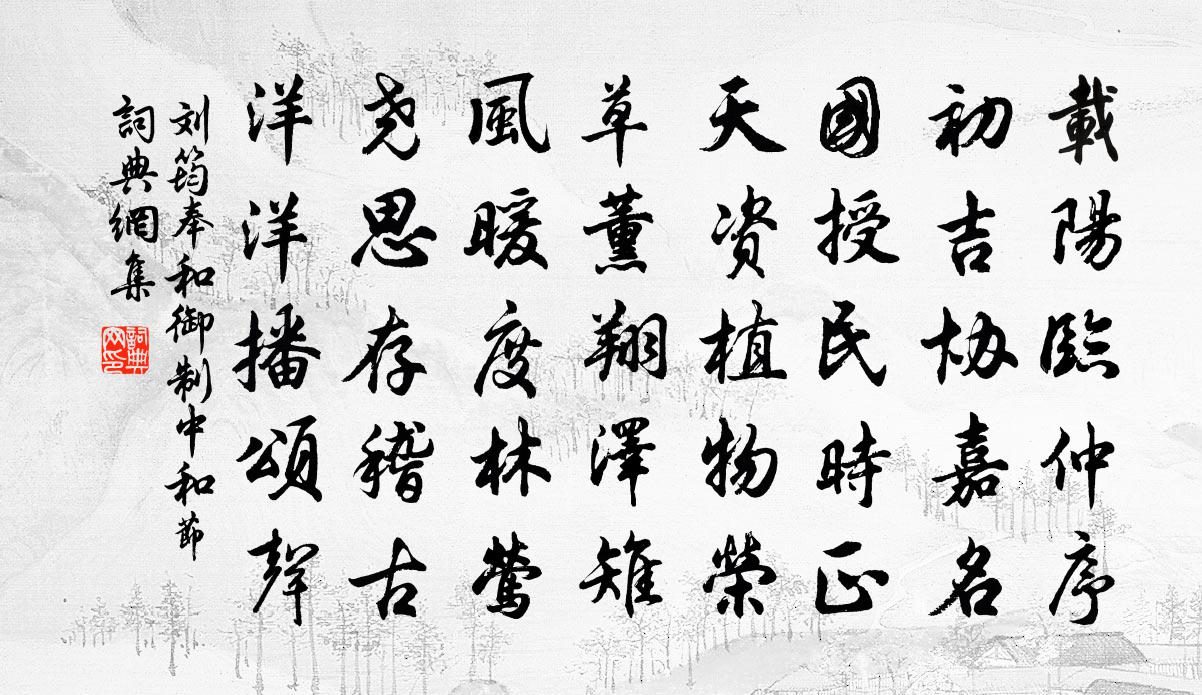 載陽臨仲序
初吉协嘉名
國授民時正
天资植物榮
草薰翔澤雉
風暖度林鶯
尧思存稽古
洋洋播頌聲
刘筠奉和御制中和節
詞典網集
詞典网印